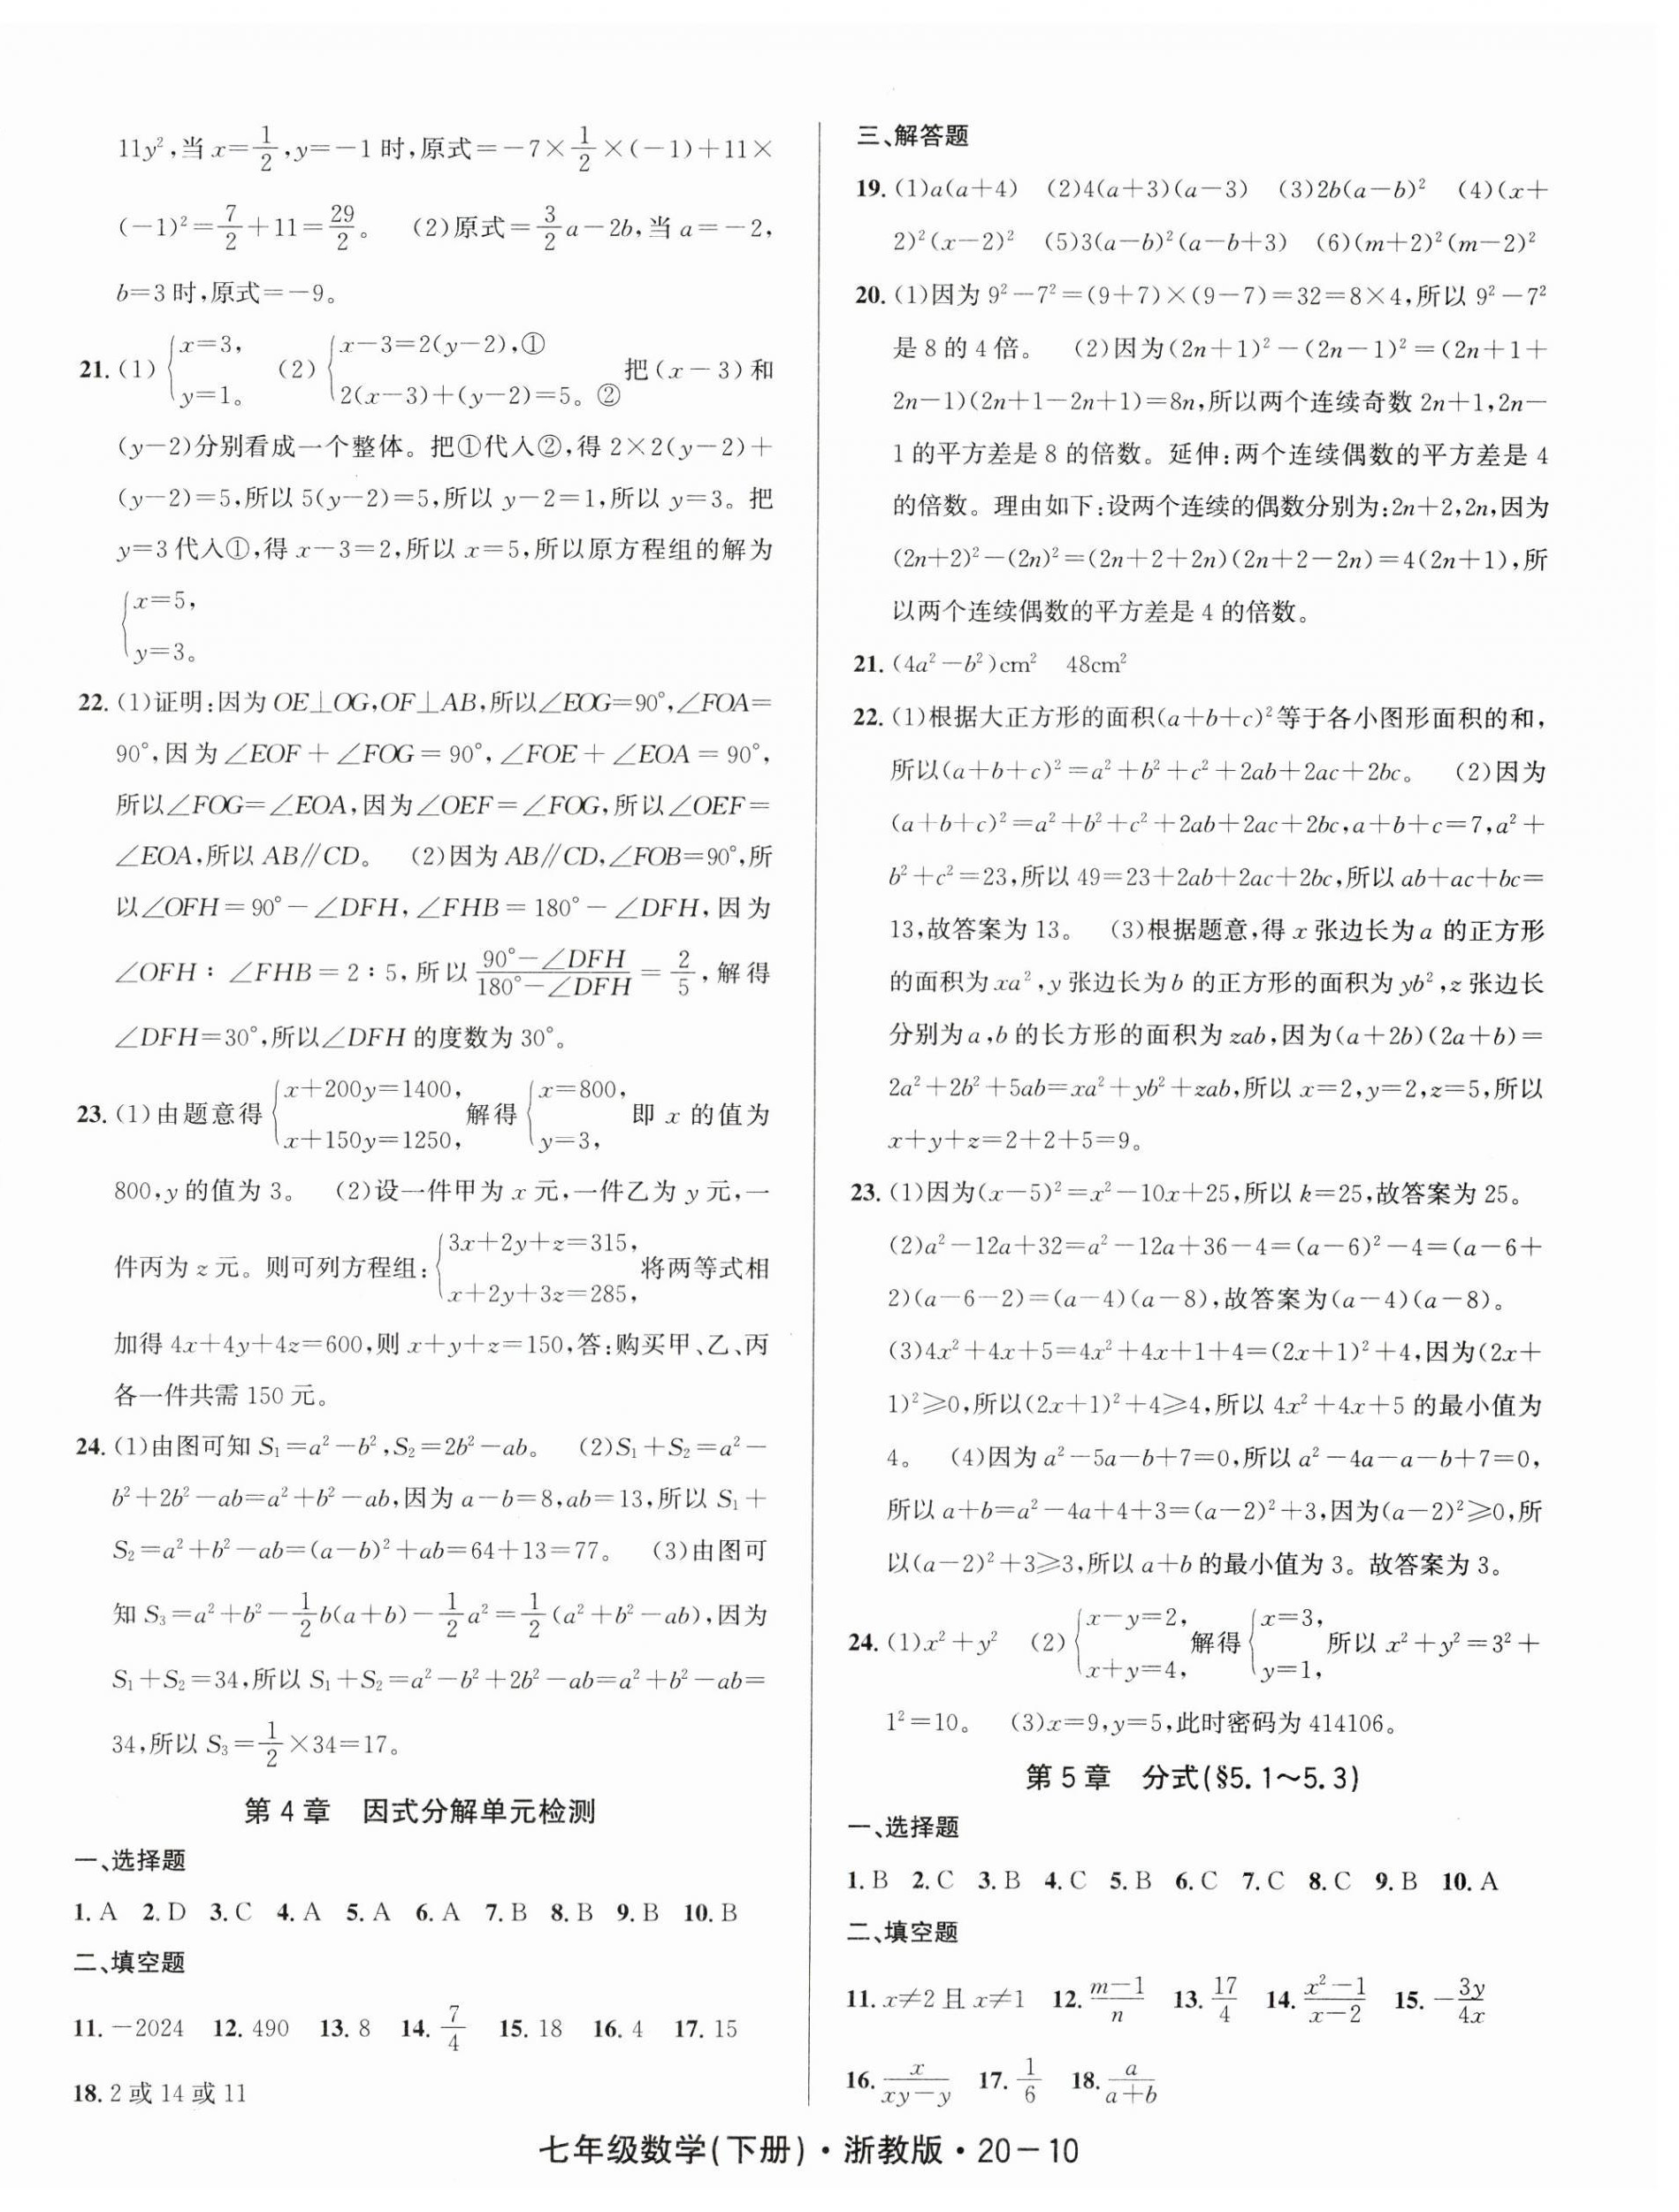 11y²,当 x=1/2,y=-1 时,原式=-7×1/2×(-1)+11×
(-1)²=7/2+11=29/2。 (2)原式=3/2a-2b,当 a=-2,
b=3 时,原式=-9。
21. (1){x=3, y=1。 (2){x-3=2(y-2),① 2(x-3)+(y-2)=5。② 把(x-3)和
(y-2)分别看成一个整体。把①代入②,得 2×2(y-2)+
(y-2)=5,所以 5(y-2)=5,所以 y-2=1,所以 y=3。把
y=3 代入①,得 x-3=2,所以 x=5,所以原方程组的解为
{x=5, y=3。
22. (1)证明:因为 OE⊥OG,OF⊥AB,所以∠EOG=90°,∠FOA=
90°,因为∠EOF+∠FOG=90°,∠FOE+∠EOA=90°,
所以∠FOG=∠EOA,因为∠OEF=∠FOG,所以∠OEF=
∠EOA,所以 AB∥CD。 (2)因为 AB∥CD,∠FOB=90°,所
以∠OFH=90°-∠DFH,∠FHB=180°-∠DFH,因为
∠OFH∶∠FHB=2∶5,所以 (90°-∠DFH)/(180°-∠DFH)=2/5,解得
∠DFH=30°,所以∠DFH 的度数为 30°。
23. (1)由题意得{x+200y=1400, x+150y=1250, 解得{x=800, y=3, 即 x 的值为
800,y 的值为 3。 (2)设一件甲为 x 元,一件乙为 y 元,一
件丙为 z 元。则可列方程组:{3x+2y+z=315, x+2y+3z=285, 将两等式相
加得 4x+4y+4z=600,则 x+y+z=150,答:购买甲、乙、丙
各一件共需 150 元。
24. (1)由图可知 S₁=a²-b²,S₂=2b²-ab。 (2)S₁+S₂=a²-
b²+2b²-ab=a²+b²-ab,因为 a-b=8,ab=13,所以 S₁+
S₂=a²+b²-ab=(a-b)²+ab=64+13=77。 (3)由图可
知 S₃=a²+b²-1/2b(a+b)-1/2a²=1/2(a²+b²-ab),因为
S₁+S₂=34,所以 S₁+S₂=a²-b²+2b²-ab=a²+b²-ab=
34,所以 S₃=1/2×34=17。
第 4 章 因式分解单元检测
一、选择题
1. A 2. D 3. C 4. A 5. A 6. A 7. B 8. B 9. B 10. B
二、填空题
11. -2024 12. 490 13. 8 14. 7/4 15. 18 16. 4 17. 15
18. 2 或 14 或 11
三、解答题
19. (1)a(a+4) (2)4(a+3)(a-3) (3)2b(a-b)² (4)(x+
2)²(x-2)² (5)3(a-b)²(a-b+3) (6)(m+2)²(m-2)²
20. (1)因为 9²-7²=(9+7)×(9-7)=32=8×4,所以 9²-7²
是 8 的 4 倍。 (2)因为(2n+1)²-(2n-1)²=(2n+1+
2n-1)(2n+1-2n+1)=8n,所以两个连续奇数 2n+1,2n-
1 的平方差是 8 的倍数。延伸:两个连续偶数的平方差是 4
的倍数。理由如下:设两个连续的偶数分别为:2n+2,2n,因为
(2n+2)²-(2n)²=(2n+2+2n)(2n+2-2n)=4(2n+1),所
以两个连续偶数的平方差是 4 的倍数。
21. (4a²-b²)cm² 48cm²
22. (1)根据大正方形的面积(a+b+c)²等于各小图形面积的和,
所以(a+b+c)²=a²+b²+c²+2ab+2ac+2bc。 (2)因为
(a+b+c)²=a²+b²+c²+2ab+2ac+2bc,a+b+c=7,a²+
b²+c²=23,所以 49=23+2ab+2ac+2bc,所以 ab+ac+bc=
13,故答案为 13。 (3)根据题意,得 x 张边长为 a 的正方形
的面积为 xa²,y 张边长为 b 的正方形的面积为 yb²,z 张边长
分别为 a,b 的长方形的面积为 zab,因为(a+2b)(2a+b)=
2a²+2b²+5ab=xa²+yb²+zab,所以 x=2,y=2,z=5,所以
x+y+z=2+2+5=9。
23. (1)因为(x-5)²=x²-10x+25,所以 k=25,故答案为 25。
(2)a²-12a+32=a²-12a+36-4=(a-6)²-4=(a-6+
2)(a-6-2)=(a-4)(a-8),故答案为(a-4)(a-8)。
(3)4x²+4x+5=4x²+4x+1+4=(2x+1)²+4,因为(2x+
1)²≥0,所以(2x+1)²+4≥4,所以 4x²+4x+5 的最小值为
4。 (4)因为 a²-5a-b+7=0,所以 a²-4a-a-b+7=0,
所以 a+b=a²-4a+4+3=(a-2)²+3,因为(a-2)²≥0,所
以(a-2)²+3≥3,所以 a+b 的最小值为 3。故答案为 3。
24. (1)x²+y² (2){x-y=2, x+y=4, 解得{x=3, y=1, 所以 x²+y²=3²+
1²=10。 (3)x=9,y=5,此时密码为 414106。
第 5 章 分式(§5.1~5.3)
一、选择题
1. B 2. C 3. B 4. C 5. B 6. C 7. C 8. C 9. B 10. A
二、填空题
11. x≠2 且 x≠1 12. (m-1)/n 13. 17/4 14. (x²-1)/(x-2) 15. -3y/4x
16. x/(xy-y) 17. 1/6 18. a/(a+b)
七年级数学(下册)·浙教版·20-10